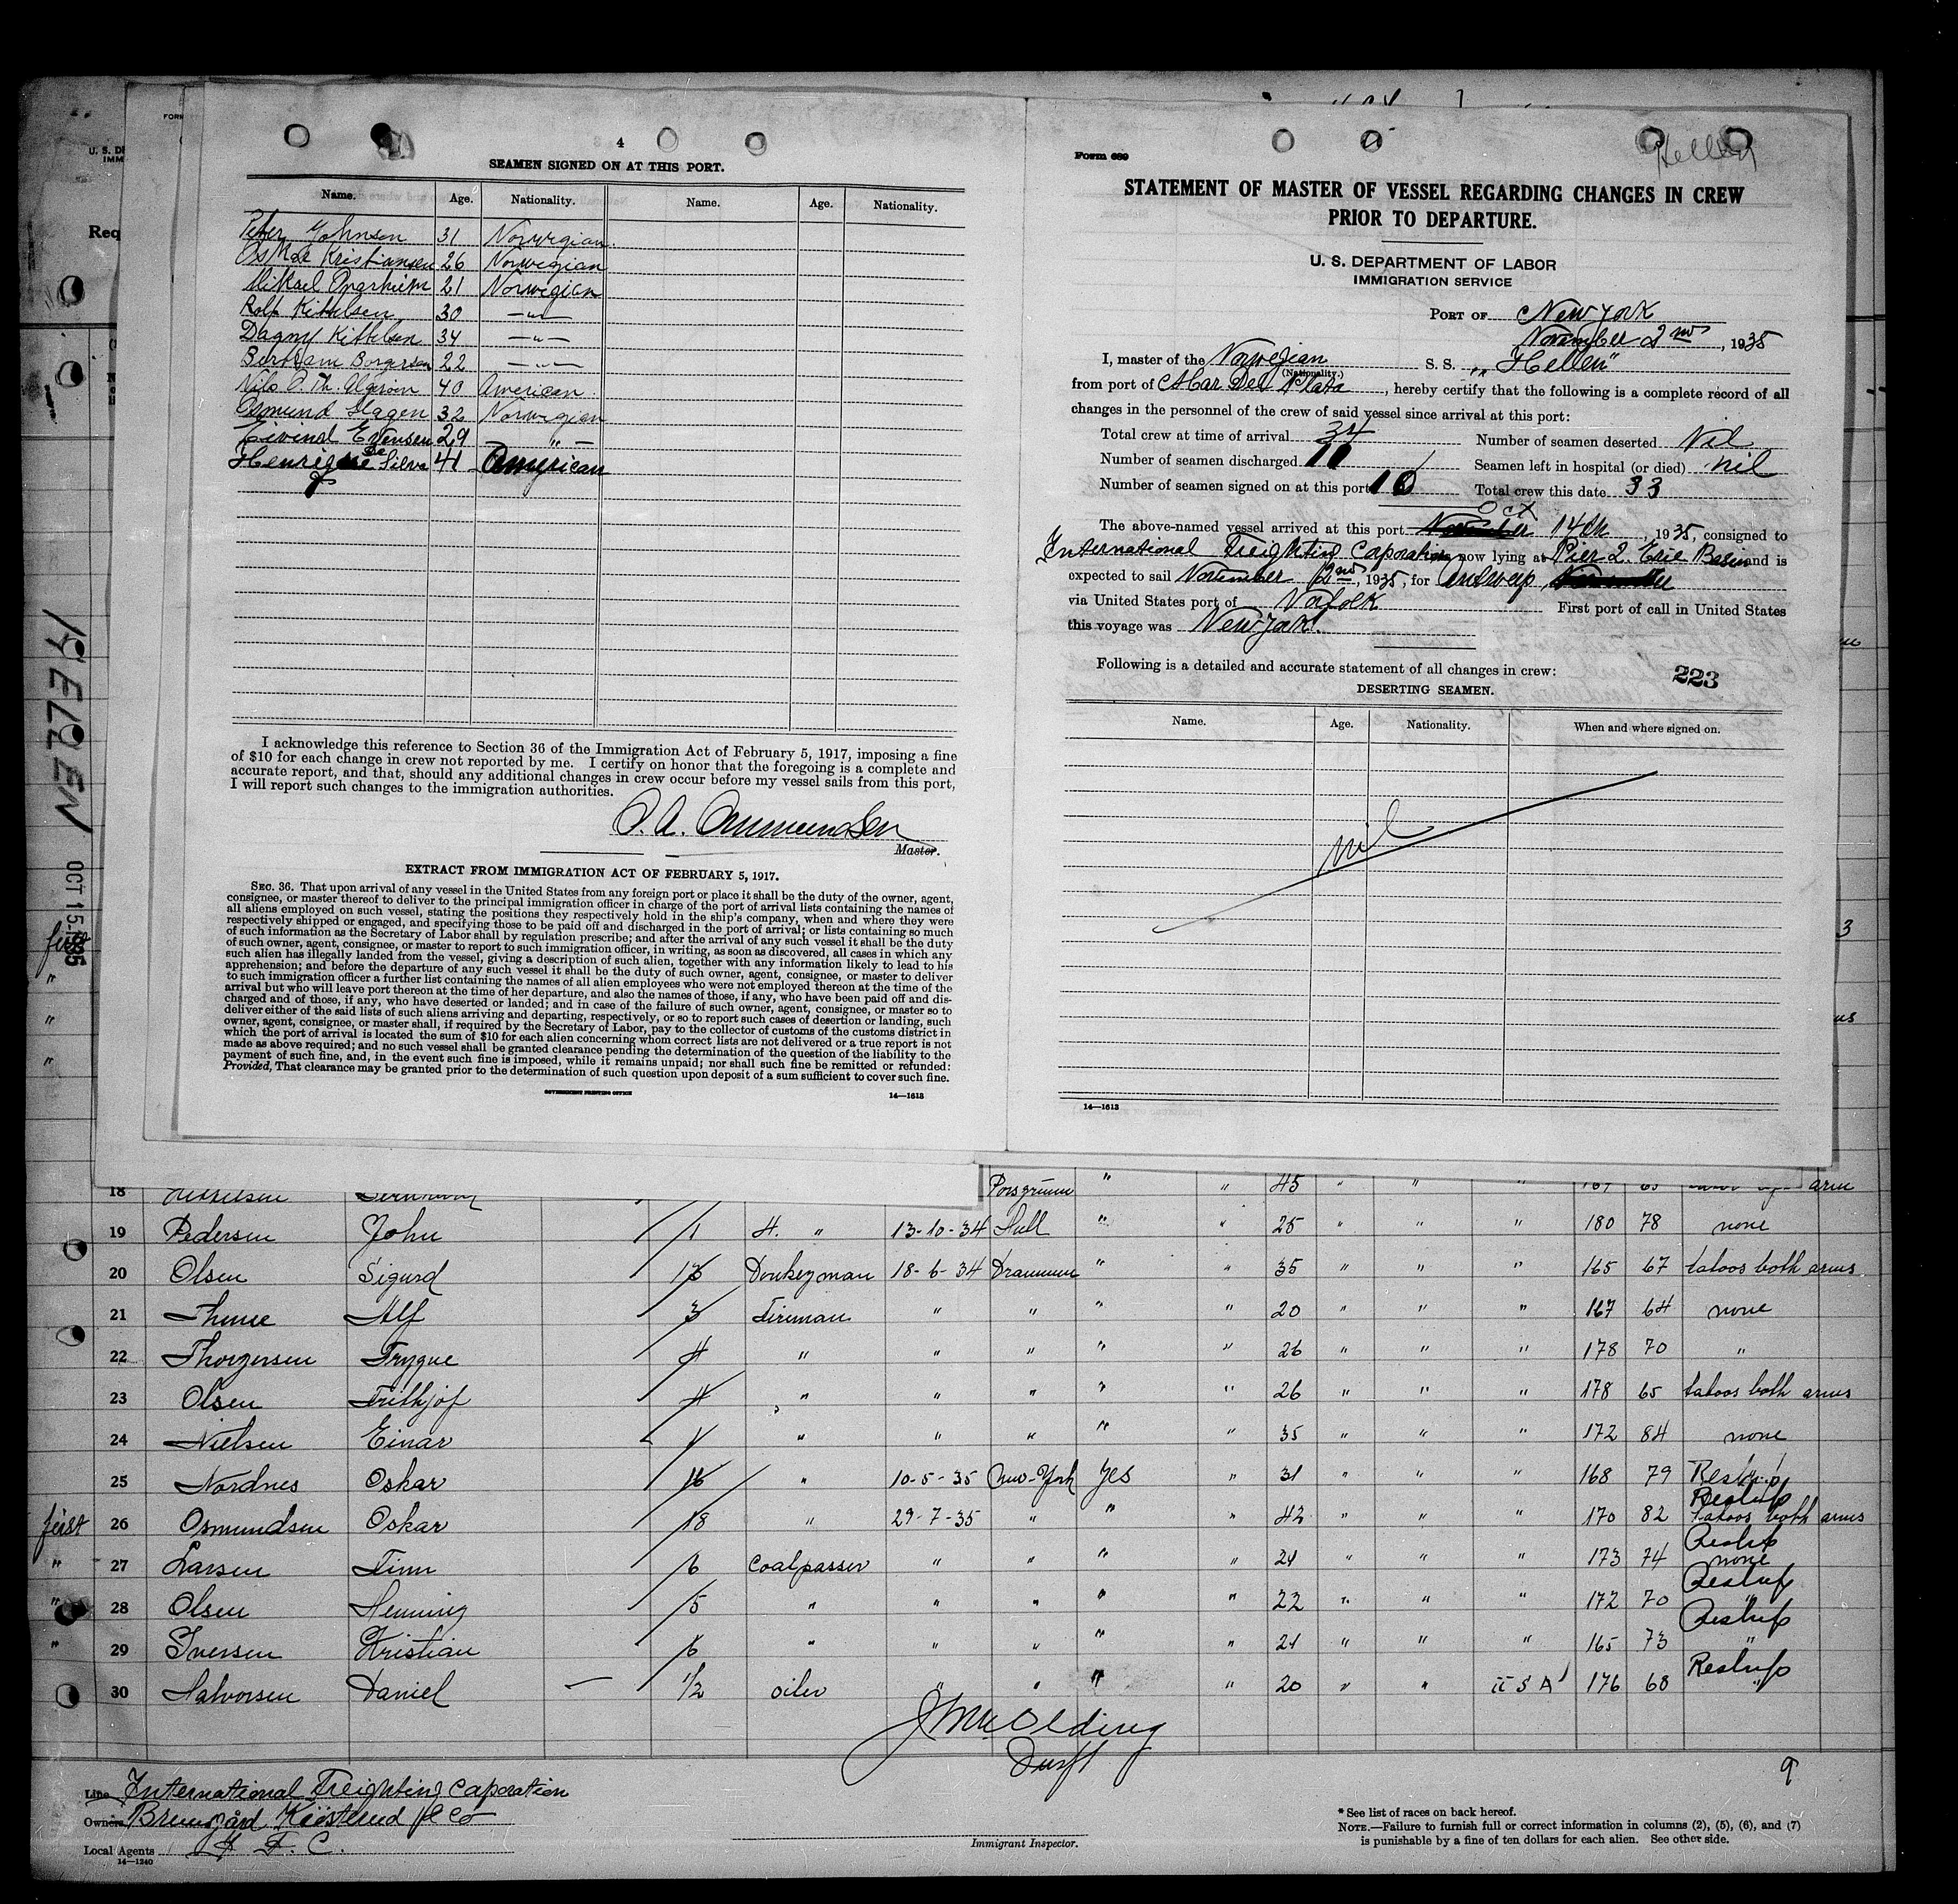 4
SEAMEN SIGNED ON AT THIS PORT.
Name. Age. Nationality. Name. Age. Nationality.
Peter Johnsen 31 Norwegian.
Kristiansen 26 Norwegian
Mikael 21 Norwegian
Rolf Kittelsen 30 —"—
Dagny Kittelsen 34 —"—
Bertram Borgersen 22 —"—
Nils O. Th. 40 American.
Osmund Hagen 32 Norwegian
Eivind Evensen 29 — " —
Henrique De Silva 41 American
I acknowledge this reference to Section 36 of the Immigration Act of February 5, 1917, imposing a fine
of $10 for each change in crew not reported by me. I certify on honor that the foregoing is a complete and
accurate report, and that, should any additional changes in crew occur before my vessel sails from this port,
I will report such changes to the immigration authorities.
Master.
EXTRACT FROM IMMIGRATION ACT OF FEBRUARY 5, 1917.
SEC. 36. That upon arrival of any vessel in the United States from any foreign port or place it shall be the duty of the owner, agent,
consignee, or master thereof to deliver to the principal immigration officer in charge of the port of arrival lists containing the names of
all aliens employed on such vessel, stating the positions they respectively hold in the ship's company, when and where they were
respectively shipped or engaged, and specifying those to be paid off and discharged in the port of arrival; or lists containing so much
of such information as the Secretary of Labor shall by regulation prescribe; and after the arrival of any such vessel it shall be the duty
of such owner, agent, consignee, or master to report to such immigration officer, in writing, as soon as discovered, all cases in which any
such alien has illegally landed from the vessel, giving a description of such alien, together with any information likely to lead to his
apprehension; and before the departure of any such vessel it shall be the duty of such owner, agent, consignee, or master to deliver
to such immigration officer a further list containing the names of all alien employees who were not employed thereon at the time of the
arrival but who will leave port thereon at the time of her departure, and also the names of those, if any, who have been paid off and dis-
charged and of those, if any, who have deserted or landed; and in case of the failure of such owner, agent, consignee, or master so to
deliver either of the said lists of such aliens arriving and departing, respectively, or so to report such cases of desertion or landing, such
owner, agent, consignee, or master shall, if required by the Secretary of Labor, pay to the collector of customs of the customs district in
which the port of arrival is located the sum of $10 for each alien concerning whom correct lists are not delivered or a true report is not
made as above required; and no such vessel shall be granted clearance pending the determination of the question of the liability to the
payment of such fine, and, in the event such fine is imposed, while it remains unpaid; nor shall such fine be remitted or refunded:
Provided, That clearance may be granted prior to the determination of such question upon deposit of a sum sufficient to cover such fine.
GOVERNMENT PRINTING OFFICE 14—1613
Form 689
Hellen
STATEMENT OF MASTER OF VESSEL REGARDING CHANGES IN CREW
PRIOR TO DEPARTURE.
U. S. DEPARTMENT OF LABOR
IMMIGRATION SERVICE
PORT OF New York
November 2nd, 1935
I, master of the Norwegian S. S. „Hellen"
(Nationality.)
from port of Mar Del Plata, hereby certify that the following is a complete record of all
changes in the personnel of the crew of said vessel since arrival at this port:
Total crew at time of arrival 34 Number of seamen deserted Nil
Number of seamen discharged 11 Seamen left in hospital (or died) nil
Number of seamen signed on at this port 10 Total crew this date 33
Oct
The above-named vessel arrived at this port 14th, 1935, consigned to
International Freighting Corporation now lying at Pier 2. Erie Basin and is
expected to sail November 2nd, 1935, for Antwerp
via United States port of Norfolk First port of call in United States
this voyage was New York.
Following is a detailed and accurate statement of all changes in crew:
223
DESERTING SEAMEN.
Name. Age. Nationality. When and where signed on.
nil
14—1613
HELLEN OCT 15 1935
18 Porsgrunn " " 45 " " " arm
19 Pedersen John 1 H. " 13-10-34 Hull " " 25 " " " 180 78 none
20 Olsen Sigurd 13 Donkeyman 18-6-34 Drammen " " 35 " " " 165 67 tatoos both arms
21 Thune Alf 3 Fireman " " " " 20 " " " 167 64 none
22 Thorgersen Trygve 4 " " " " " 26 " " " 178 70 "
23 Olsen Frithjof 4 " " " " " 26 " " " 178 65 tatoos both arms
24 Nielsen Einar 1 " " " " " 35 " " " 172 84 none
25 Nordnes Oskar 16 " 10-5-35 New-York yes " 31 " " " 168 79
first 26 Osmundsen Oskar 18 " 29-7-35 " " " 42 " " " 170 82 tatoos both arms
" 27 Larsen Finn 6 Coalpasser " " " " 24 " " " 173 74 none
" 28 Olsen Henning 5 " " " " " 22 " " " 172 70 "
" 29 Iversen Kristian 6 " " " " " 21 " " " 165 73 "
30 Halvorsen Daniel — 1/2 oiler " " " " 20 " " U S A 176 68 "
9
Line International Freighting Corporation
Owners
Local Agents I. F. C.
14—1240
Immigrant Inspector.
* See list of races on back hereof.
NOTE.—Failure to furnish full or correct information in columns (2), (5), (6), and (7)
is punishable by a fine of ten dollars for each alien. See other side.